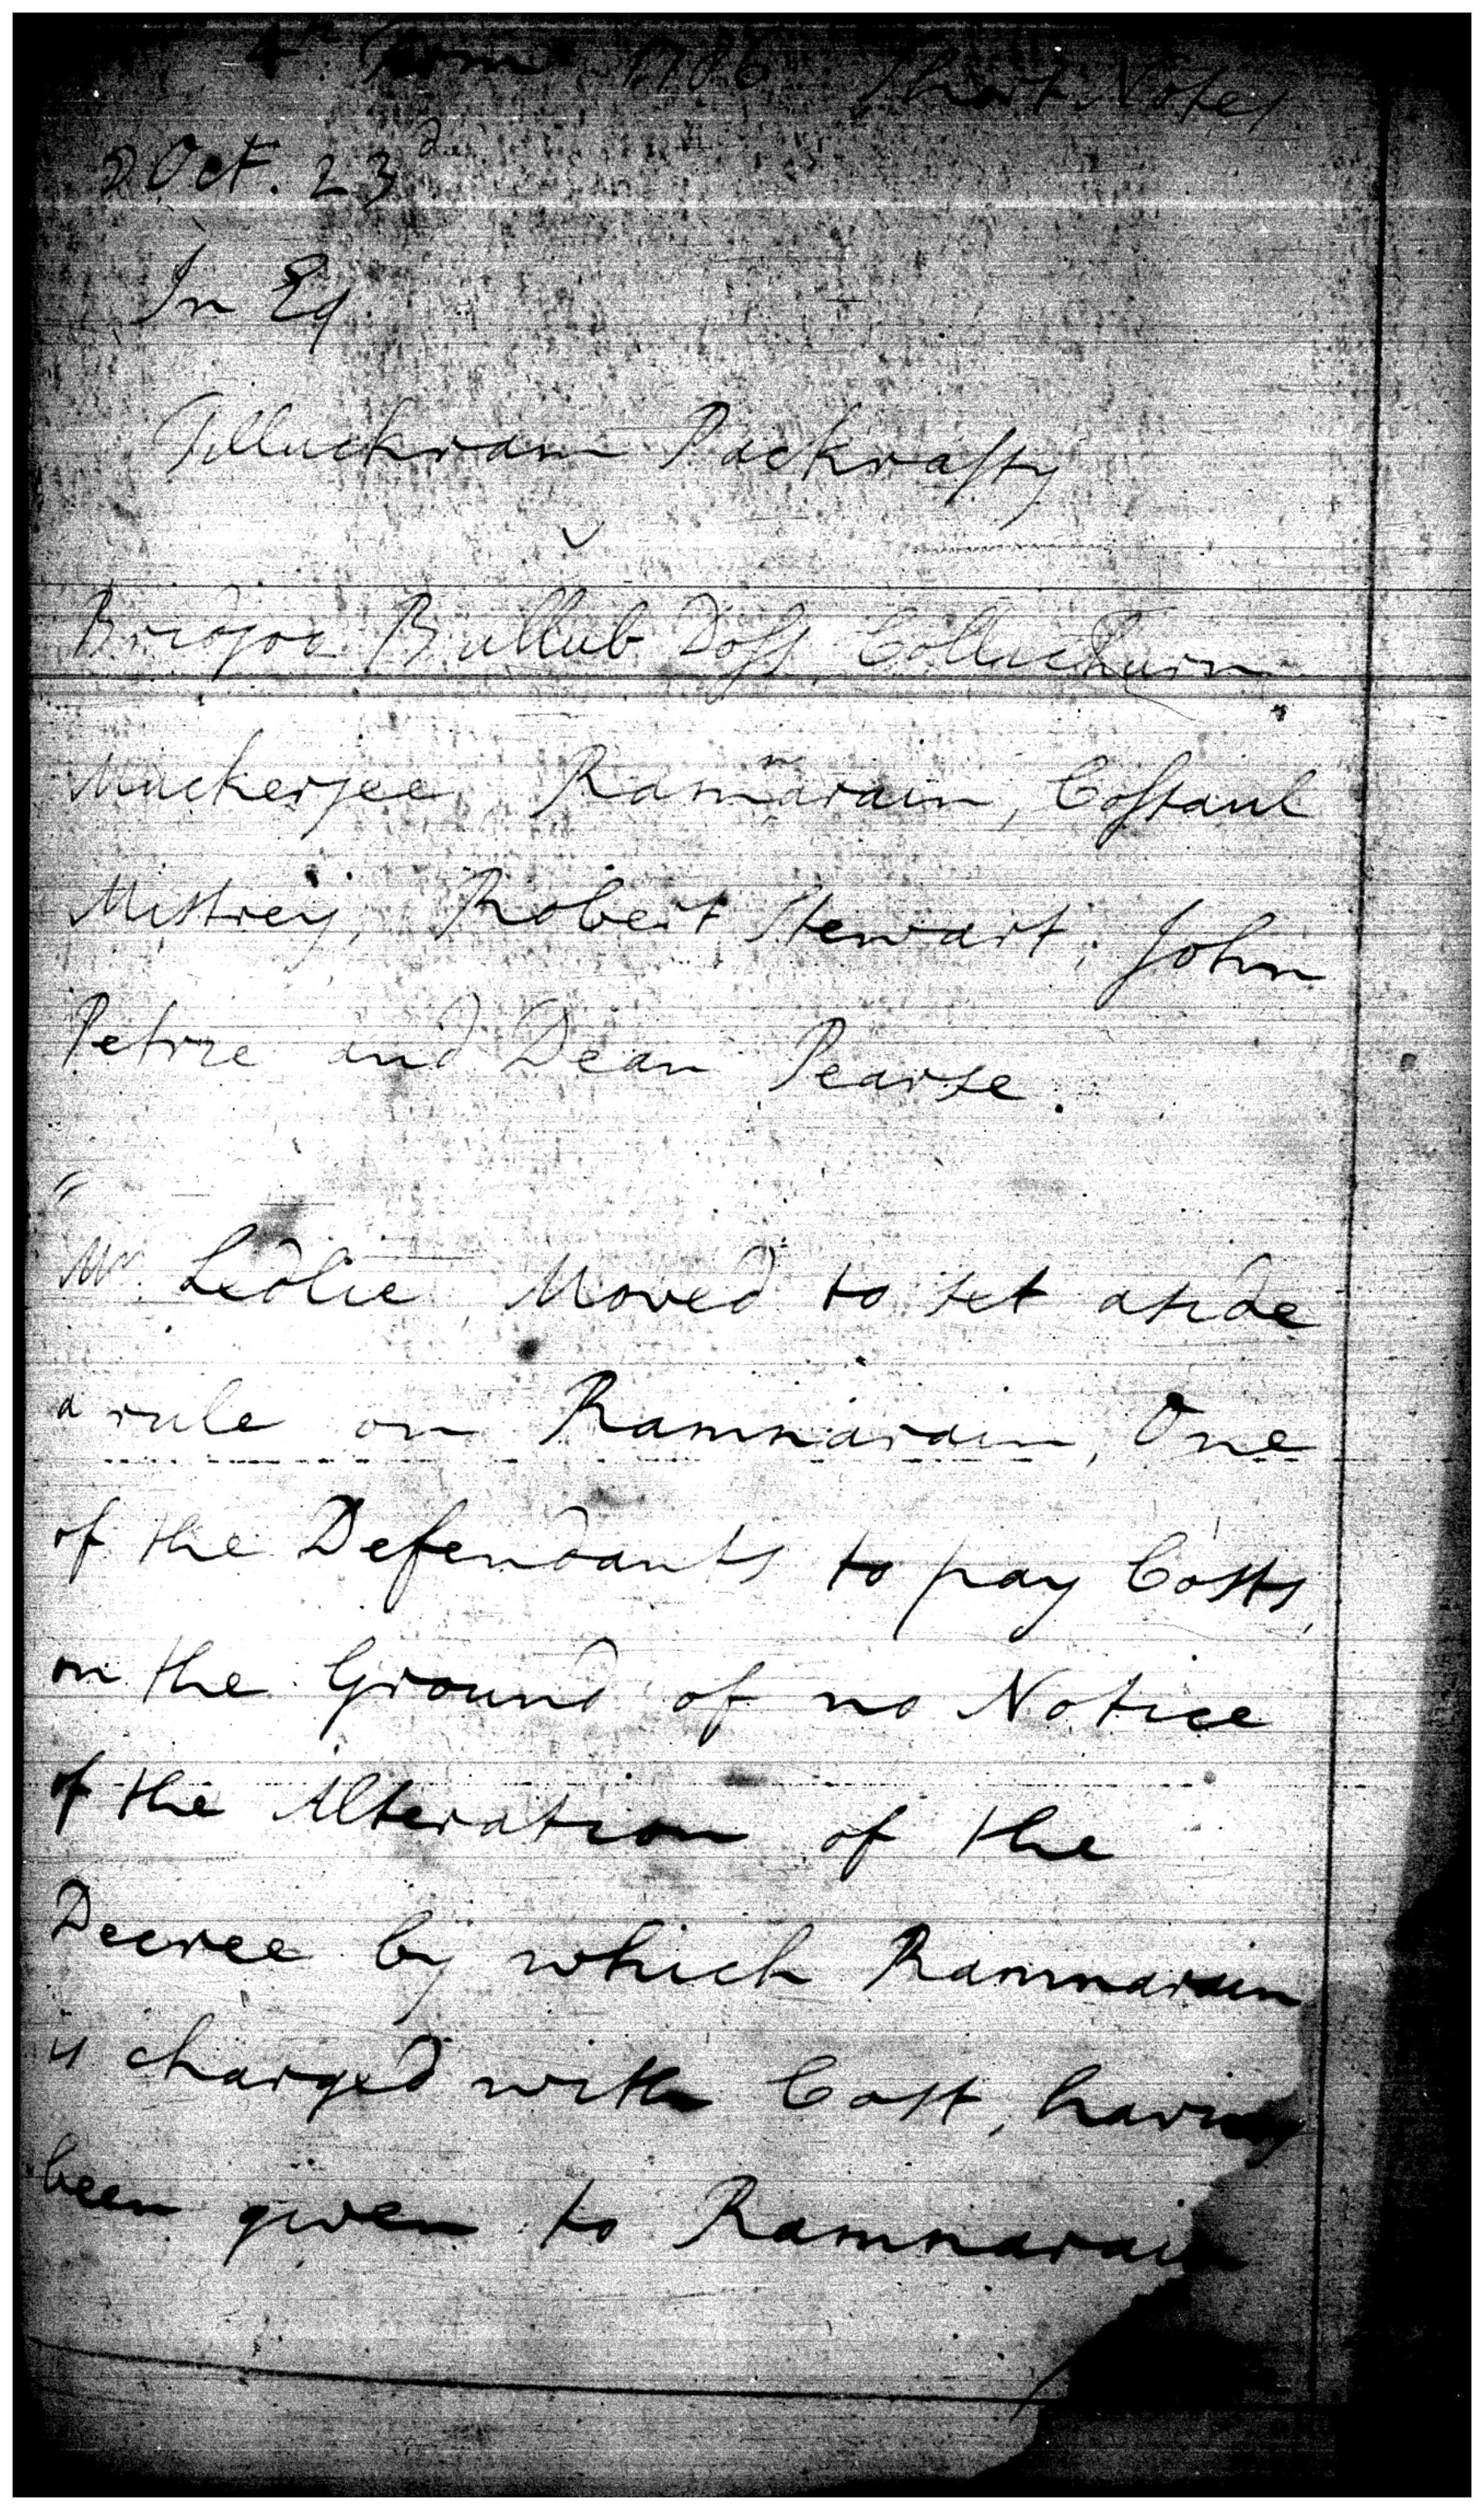 4th Term 1786 Short Notes
Oct. 23d
In Eq
Tilluckram Packrasty
v
Bridjoo Bullub Doss Colluchurn
Muckerjee, Ramnarain, Cossaul
Mistrey, Robert Stewart, John
Petrie and Dean Pearse.
Mr. Ledlie Moved to set aside
a rule on Ramnarain, One
of the Defendants to pay Costs,
on the Ground of no Notice
of the Alteration of the
Decree by which Ramnarain
is charged with Cost, having
been given to Ramnarain